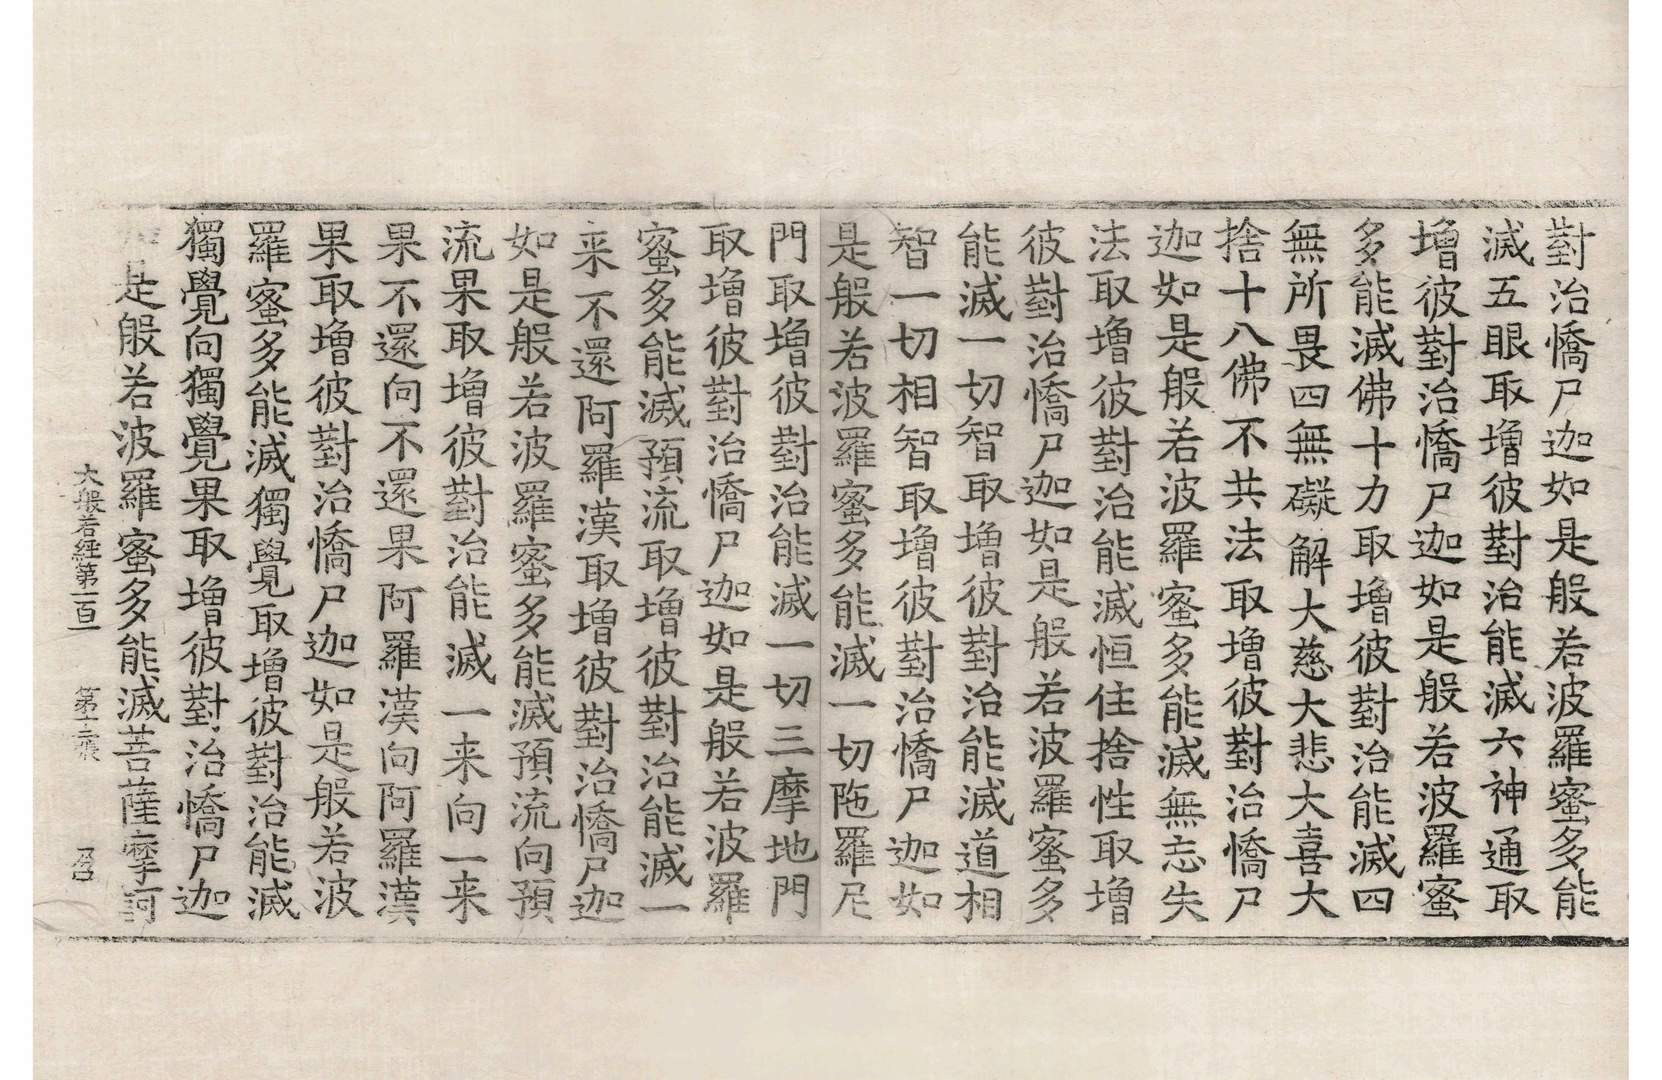 對治憍尸迦如是般若波羅蜜多能
滅五眼取增彼對治能滅六神通取
增彼對治憍尸迦如是般若波羅蜜
多能滅佛十力取增彼對治能滅四
無所畏四無礙解大慈大悲大喜大
捨十八佛不共法取增彼對治憍尸
迦如是般若波羅蜜多能滅無忘失
法取增彼對治能滅恒住捨性取增
彼對治憍尸迦如是般若波羅蜜多
能滅一切智取增彼對治能滅道相
智一切相智取增彼對治憍尸迦如
是般若波羅蜜多能滅一切陁羅尼
門取增彼對治能滅一切三摩地門
取增彼對治憍尸迦如是般若波羅
蜜多能滅預流取增彼對治能滅一
来不還阿羅漢取增彼對治憍尸迦
如是般若波羅蜜多能滅預流向預
流果取增彼對治能滅一来向一来
果不還向不還果阿羅漢向阿羅漢
果取增彼對治憍尸迦如是般若波
羅蜜多能滅獨覺取增彼對治能滅
獨覺向獨覺果取增彼對治憍尸迦
是般若波羅蜜多能滅菩薩摩訶
大般若經第一百 第十二張